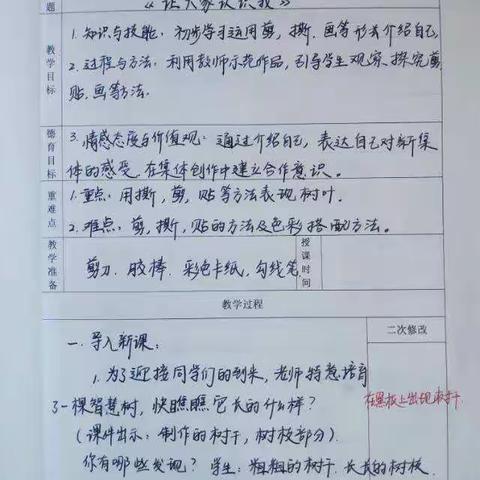 题 《让大家认识我》
教学目标 1.知识与技能:初步学习运用剪,撕,画等形式介绍自己
2.过程与方法:利用教师示范作品,引导学生观察、探究剪
贴、画等方法.
德育目标 3.情感态度与价值观:通过介绍自己,表达自己对新集
体的感受.在集体创作中建立合作意识。
重难点 1.重点:用撕,剪,贴等方法表现树叶.
2.难点:剪,撕,贴的方法及色彩搭配方法。
教学准备 剪刀.胶棒.彩色卡纸,勾线笔 授课时间
教学过程
二次修改
一.导入新课:
1.为了迎接同学们的到来,老师特意培育
3一棵智慧树,快瞧瞧它长的什么样?
在黑板上出现树干.
(课件出示:制作的树干,树枝部分).
你有哪些发现?学生:粗粗的树干.长长的树枝.